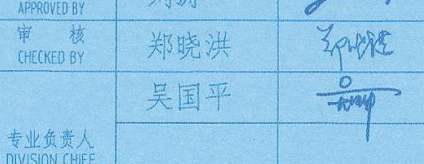 APPROVED BY
审 核 郑晓洪
CHECKED BY
吴国平
专业负责人
DIVISION CHIEF